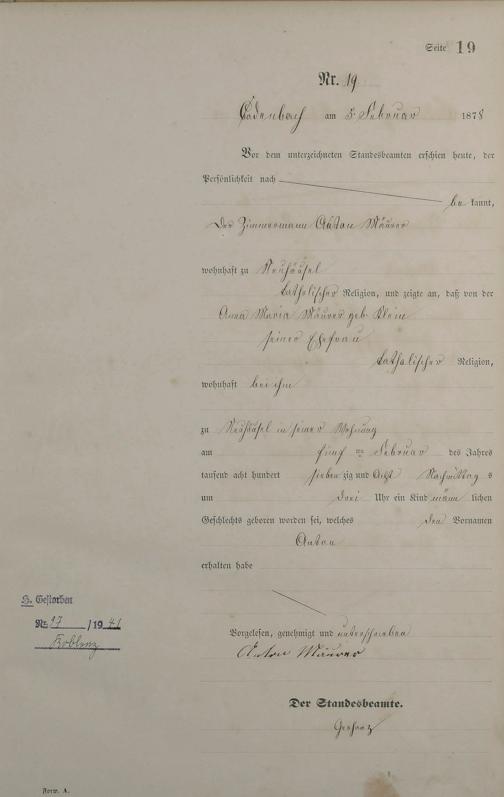 Seite 19
Nr. 19
Cadenbach am 5. Februar 1878
Vor dem unterzeichneten Standesbeamten erschien heute, der
Persönlichkeit nach
be kannt,
der Zimmermann Anton Mäurer
wohnhaft zu Neuhäusel
katholischer Religion, und zeigte an, daß von der
Anna Maria Mäurer geb. Klein
seiner Ehefrau
katholischer Religion,
wohnhaft bei ihm
zu Neuhäusel in seiner Wohnung
am fünf ten Februar des Jahres
tausend acht hundert sieben zig und acht Nachmittag s
um drei Uhr ein Kind männ lichen
Geschlechts geboren worden sei, welches den Vornamen
Anton
erhalten habe
H. Gestorben
Nr. 17 /1941
Koblenz
Vorgelesen, genehmigt und unterschrieben
Anton Mäurer
Der Standesbeamte.
Form. A.